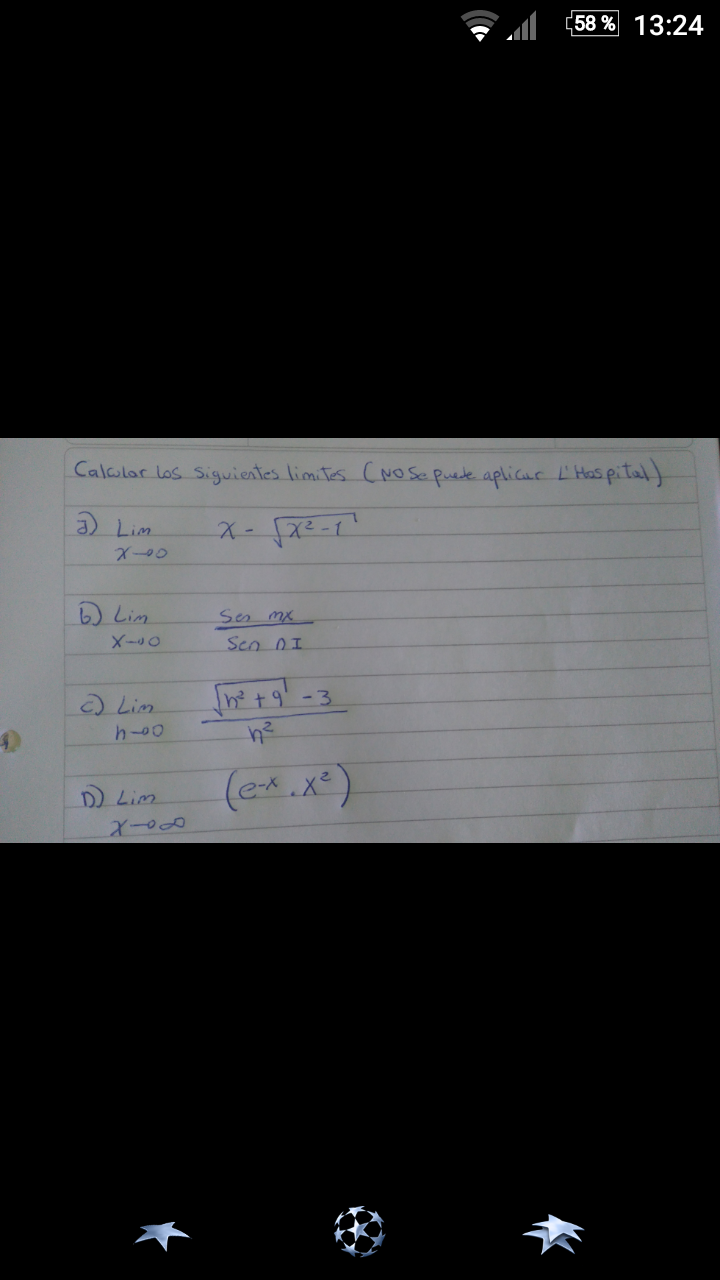 58 % 13:24
Calcular los siguientes limites (NO se puede aplicar L'Hospital)
a) Lim x - √x² - 1
x→0
b) Lim Sen mx
x→0 Sen n I
c) Lim √h² + 9 - 3
h→0 h²
D) Lim (e-x . x²)
x→∞